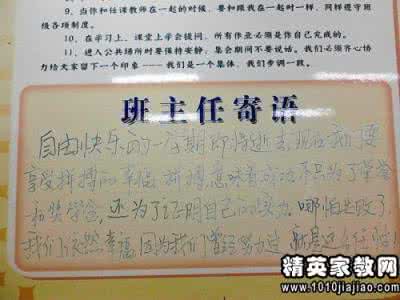 9、当你和任课教师在一起的时候，要和跟我在一起时一样，同样遵守班
级各项制度。
10、在学习上，课堂上学会提问，所有作业必须是你自己完成的。
11、进入公共场所时要保持安静；集会期间不要说话。我们必须齐心协
力给大家留下一个印象——我们是一个集体，我们步调一致。
班主任寄语
自由快乐的一学期即将逝去现在我们要
享受拼搏的幸福 拼搏意味着成功不只为了荣誉
和奖学金，还为了证明自己的实力。哪怕失败了
我们依然幸福 因为我们曾经努力过
精英家教网
www.1010jiajiao.com